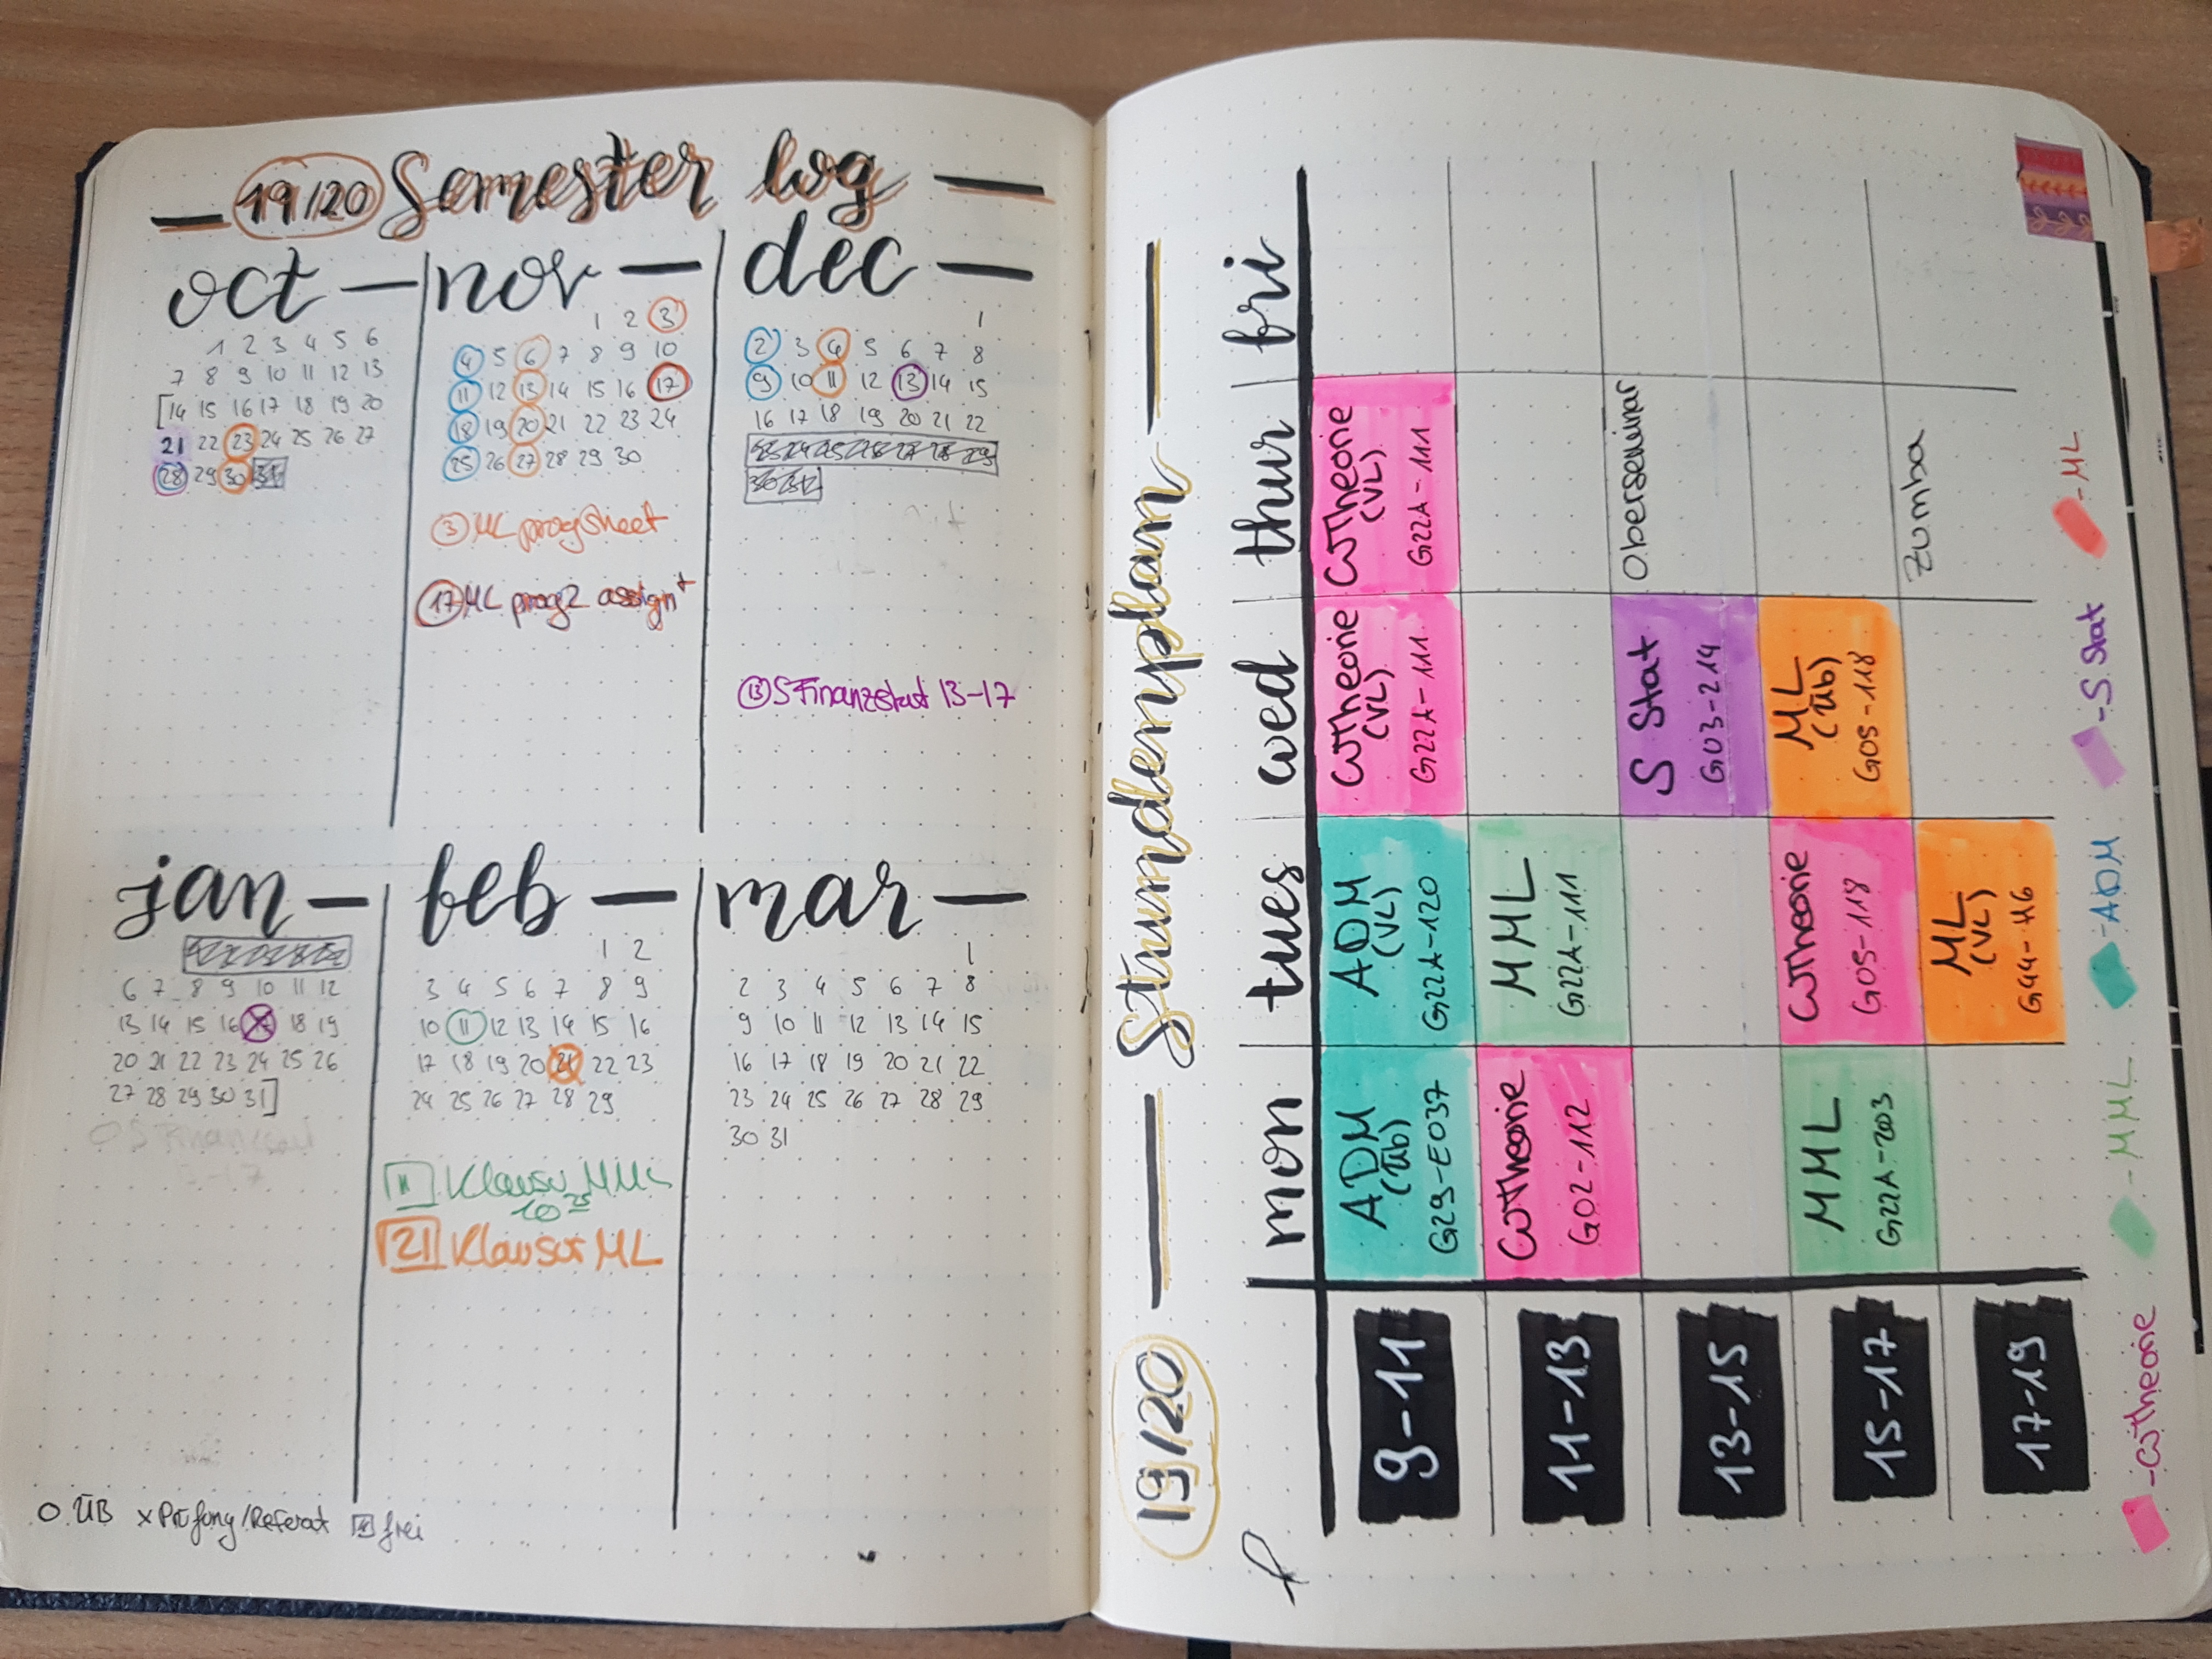 19/20 Semester log
oct
1 2 3 4 5 6
7 8 9 10 11 12 13
[14 15 16 17 18 19 20
21 22 23 24 25 26 27
28 29 30 31
nov
1 2 3
4 5 6 7 8 9 10
11 12 13 14 15 16 17
18 19 20 21 22 23 24
25 26 27 28 29 30
3 ML prog Sheet
17 ML prog2 assignt
dec
1
2 3 4 5 6 7 8
9 10 11 12 13 14 15
16 17 18 19 20 21 22
23 24 25 26 27 28 29
30 31
13 S Finanzstat 13-17
jan
6 7 8 9 10 11 12
13 14 15 16 17 18 19
20 21 22 23 24 25 26
27 28 29 30 31]
feb
1 2
3 4 5 6 7 8 9
10 11 12 13 14 15 16
17 18 19 20 21 22 23
24 25 26 27 28 29
11 Klausur MML
10 25
21 Klausur ML
mar
1
2 3 4 5 6 7 8
9 10 11 12 13 14 15
16 17 18 19 20 21 22
23 24 25 26 27 28 29
30 31
O ÜB x Prüfung/Referat frei
19/20 Stundenplan
mon tues wed thur fri
9-11
ADM
(Üb)
G29-E037
ADM
(VL)
G22A-120
WTheorie
(VL)
G22A-111
WTheorie
(VL)
G22A-111
11-13
WTheorie
G02-112
MML
G22A-111
13-15
S Stat
G03-214
Oberseminar
15-17
MML
G22A-203
WTheorie
G05-118
ML
(Üb)
G05-118
17-19
ML
(VL)
G44-H6
Zumba
-WTheorie -MML -ADM -S Stat -ML